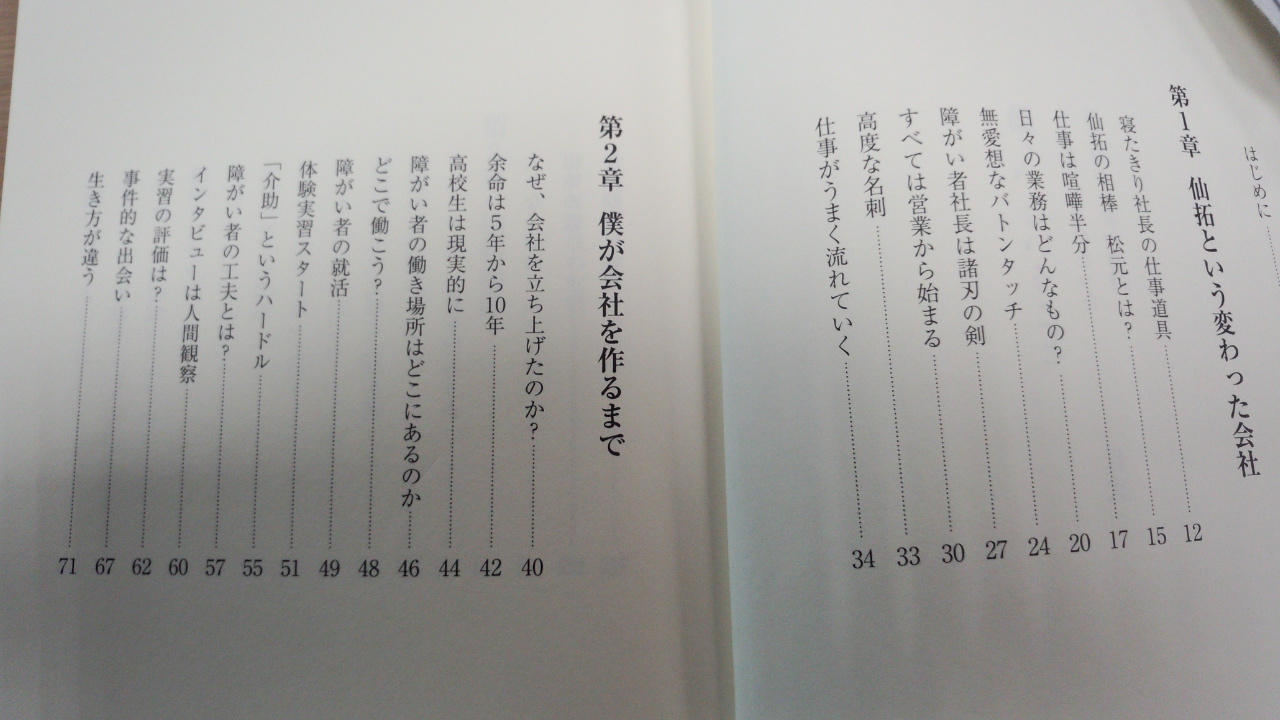 はじめに
第1章 仙拓という変わった会社
寝たきり社長の仕事道具 12
仙拓の相棒 松元とは? 15
仕事は喧嘩半分 17
日々の業務はどんなもの? 20
無愛想なバトンタッチ 24
障がい者社長は諸刃の剣 27
すべては営業から始まる 30
高度な名刺 33
仕事がうまく流れていく 34
第2章 僕が会社を作るまで
なぜ、会社を立ち上げたのか? 40
余命は5年から10年 42
高校生は現実的に 44
障がい者の働き場所はどこにあるのか 46
どこで働こう? 48
障がい者の就活 49
体験実習スタート 51
「介助」というハードル 55
障がい者の工夫とは? 57
インタビューは人間観察 60
実習の評価は? 62
事件的な出会い 67
生き方が違う 71